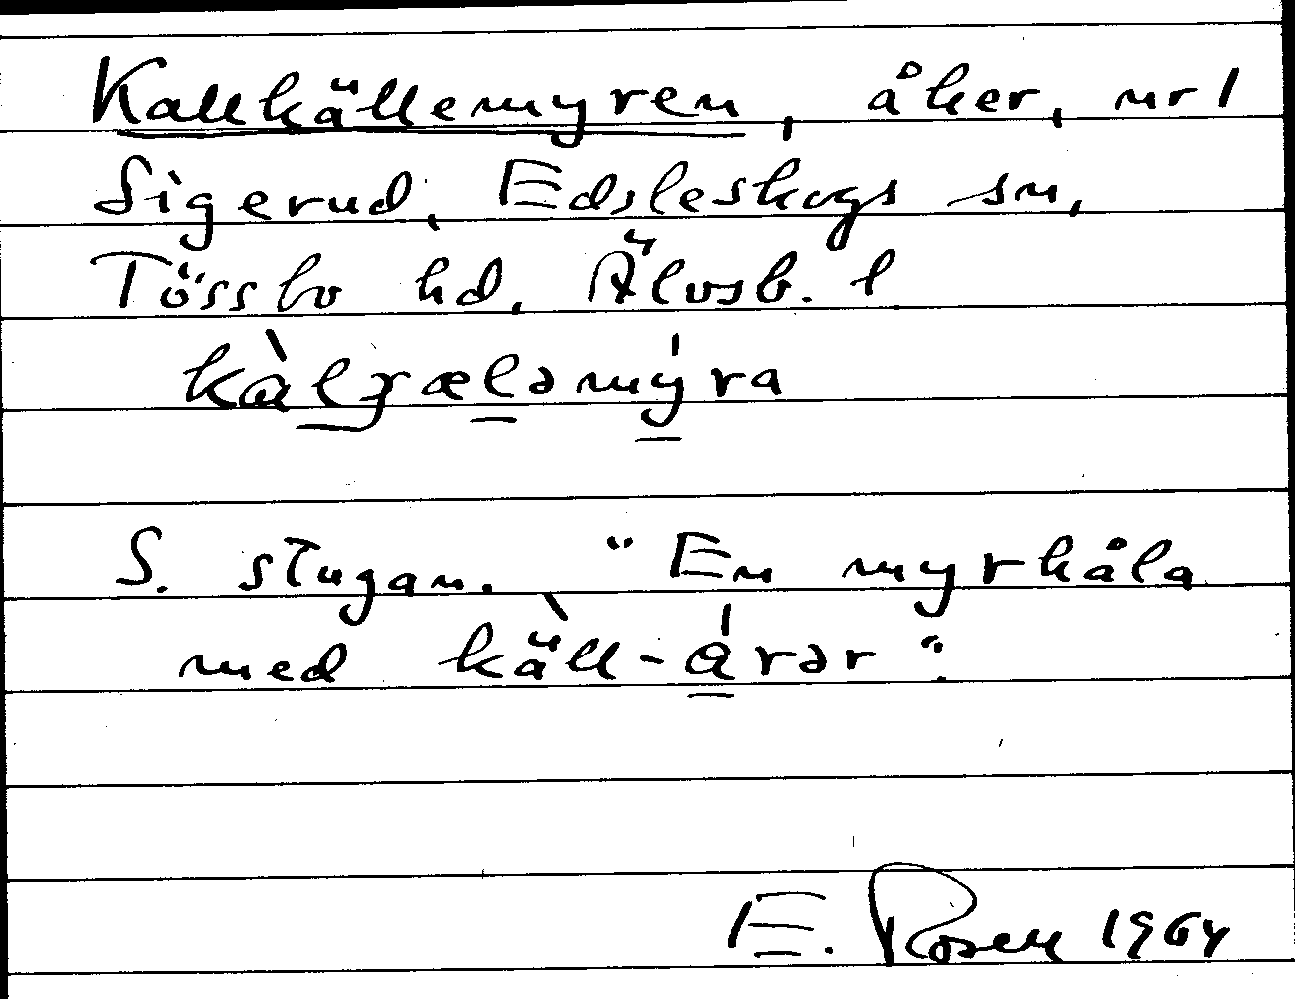 Kallkällemyren, åker, nr 1
Sigerud, Edsleskogs sn,
Tössbo hd. Älvsb. l
kàlɟæləmýra
S. stugan. "En myrhåla
med kä̀ll-árər".
E. Rosell 1964